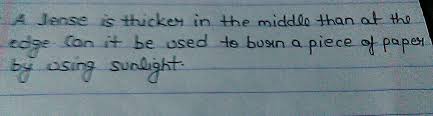 A lense is thicker in the middle than at the
edge Can it be used to burn a piece of paper
by using sunlight.